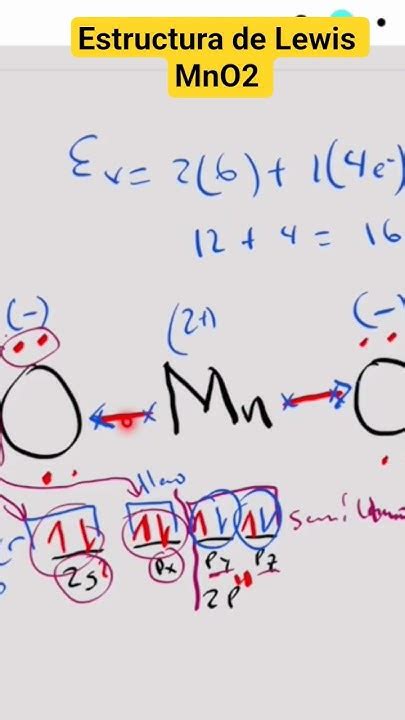 Estructura de Lewis
MnO2
Ev = 2(6) + 1(4e-)
12 + 4 = 16
(-) (2+) (-)
O Mn O
lleno
2s² px py pz
2p⁴